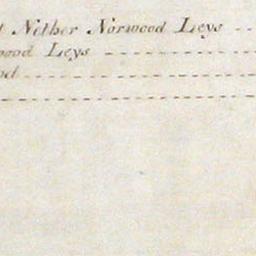 Nether Norwood Leys
wood Leys